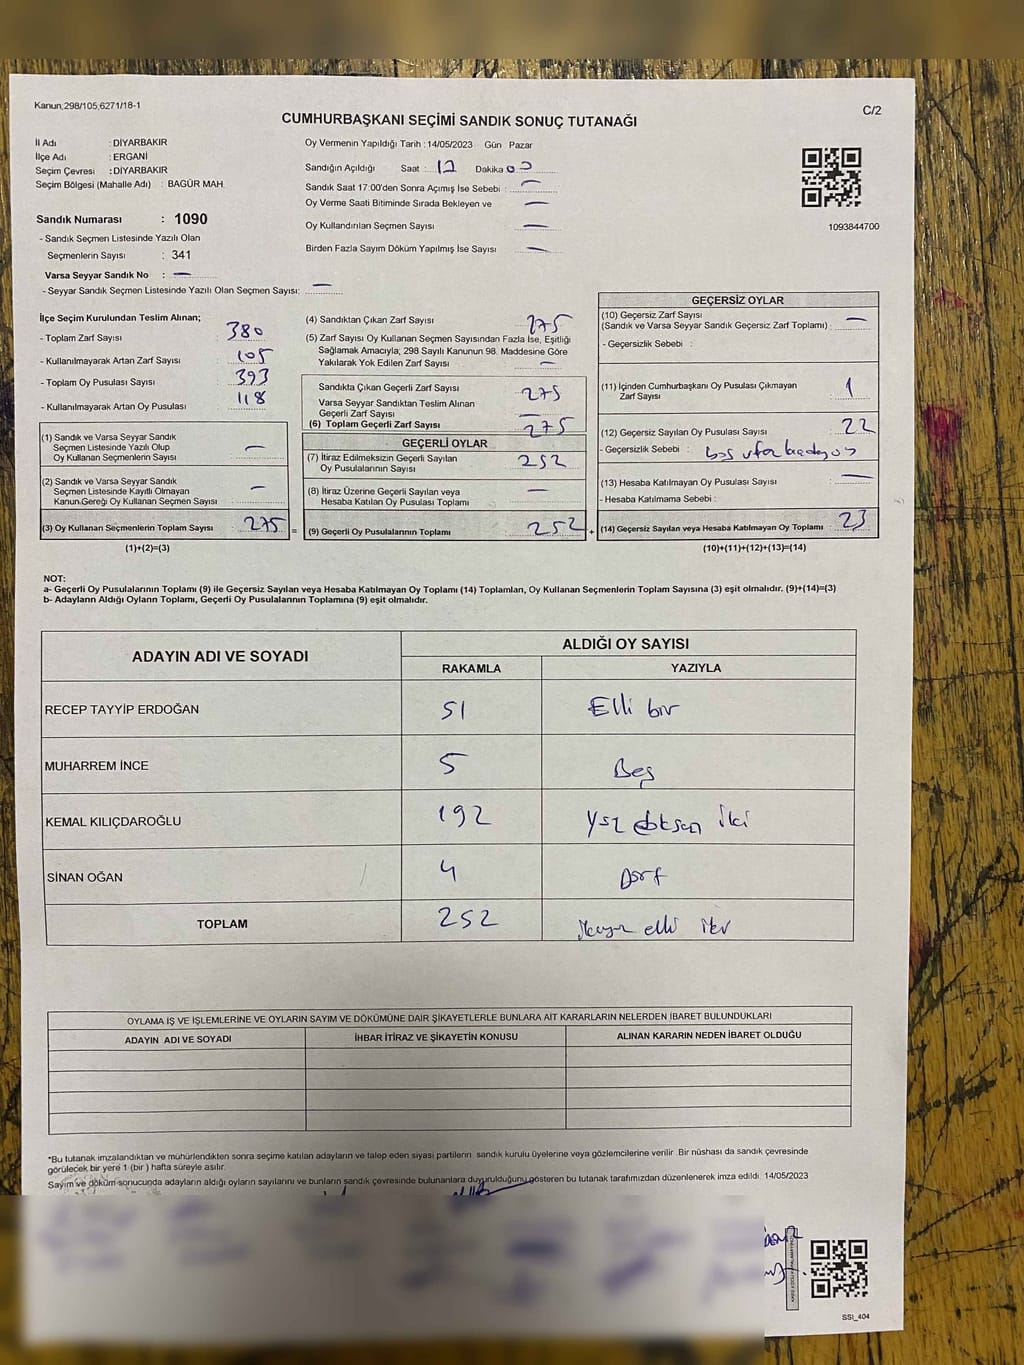 Kanun;298/105;6271/18-1
C/2
CUMHURBAŞKANI SEÇİMİ SANDIK SONUÇ TUTANAĞI
İl Adı : DİYARBAKIR
İlçe Adı : ERGANİ
Seçim Çevresi : DİYARBAKIR
Seçim Bölgesi (Mahalle Adı) : BAGÜR MAH.
Sandık Numarası : 1090
- Sandık Seçmen Listesinde Yazılı Olan
Seçmenlerin Sayısı : 341
Varsa Seyyar Sandık No : —
- Seyyar Sandık Seçmen Listesinde Yazılı Olan Seçmen Sayısı: —
Oy Vermenin Yapıldığı Tarih : 14/05/2023 Gün Pazar
Sandığın Açıldığı Saat : 17 Dakika 00
Sandık Saat 17:00'den Sonra Açımış İse Sebebi : —
Oy Verme Saati Bitiminde Sırada Bekleyen ve —
Oy Kullandırılan Seçmen Sayısı —
Birden Fazla Sayım Döküm Yapılmış İse Sayısı —
1093844700
İlçe Seçim Kurulundan Teslim Alınan;
- Toplam Zarf Sayısı : 380
- Kullanılmayarak Artan Zarf Sayısı : 105
- Toplam Oy Pusulası Sayısı : 393
- Kullanılmayarak Artan Oy Pusulası : 118
(1) Sandık ve Varsa Seyyar Sandık
Seçmen Listesinde Yazılı Olup
Oy Kullanan Seçmenlerin Sayısı —
(2) Sandık ve Varsa Seyyar Sandık
Seçmen Listesinde Kayıtlı Olmayan
Kanun Gereği Oy Kullanan Seçmen Sayısı —
(3) Oy Kullanan Seçmenlerin Toplam Sayısı 275
(1)+(2)=(3)
(4) Sandıktan Çıkan Zarf Sayısı 275
(5) Zarf Sayısı Oy Kullanan Seçmen Sayısından Fazla İse, Eşitliği
Sağlamak Amacıyla; 298 Sayılı Kanunun 98. Maddesine Göre
Yakılarak Yok Edilen Zarf Sayısı —
Sandıkta Çıkan Geçerli Zarf Sayısı 275
Varsa Seyyar Sandıktan Teslim Alınan
Geçerli Zarf Sayısı —
(6) Toplam Geçerli Zarf Sayısı 275
GEÇERLİ OYLAR
(7) İtiraz Edilmeksizin Geçerli Sayılan
Oy Pusulalarının Sayısı 252
(8) İtiraz Üzerine Geçerli Sayılan veya
Hesaba Katılan Oy Pusulası Toplamı —
= (9) Geçerli Oy Pusulalarının Toplamı 252
GEÇERSİZ OYLAR
(10) Geçersiz Zarf Sayısı
(Sandık ve Varsa Seyyar Sandık Geçersiz Zarf Toplamı) : —
- Geçersizlik Sebebi :
(11) İçinden Cumhurbaşkanı Oy Pusulası Çıkmayan
Zarf Sayısı 1
(12) Geçersiz Sayılan Oy Pusulası Sayısı 22
- Geçersizlik Sebebi : boş
(13) Hesaba Katılmayan Oy Pusulası Sayısı —
- Hesaba Katılmama Sebebi :
+ (14) Geçersiz Sayılan veya Hesaba Katılmayan Oy Toplamı 23
(10)+(11)+(12)+(13)=(14)
NOT:
a- Geçerli Oy Pusulalarının Toplamı (9) ile Geçersiz Sayılan veya Hesaba Katılmayan Oy Toplamı (14) Toplamları, Oy Kullanan Seçmenlerin Toplam Sayısına (3) eşit olmalıdır. (9)+(14)=(3)
b- Adayların Aldığı Oyların Toplamı, Geçerli Oy Pusulalarının Toplamına (9) eşit olmalıdır.
ADAYIN ADI VE SOYADI
ALDIĞI OY SAYISI
RAKAMLA YAZIYLA
RECEP TAYYİP ERDOĞAN 51 Elli bir
MUHARREM İNCE 5 Beş
KEMAL KILIÇDAROĞLU 192 Yüz doksan iki
SİNAN OĞAN 4 Dört
TOPLAM 252 ikiyüz elli iki
OYLAMA İŞ VE İŞLEMLERİNE VE OYLARIN SAYIM VE DÖKÜMÜNE DAİR ŞİKAYETLERLE BUNLARA AİT KARARLARIN NELERDEN İBARET BULUNDUKLARI
ADAYIN ADI VE SOYADI İHBAR İTİRAZ VE ŞİKAYETİN KONUSU ALINAN KARARIN NEDEN İBARET OLDUĞU
*Bu tutanak imzalandıktan ve mühürlendikten sonra seçime katılan adayların ve talep eden siyasi partilerin sandık kurulu üyelerine veya gözlemcilerine verilir. Bir nüshası da sandık çevresinde
görülecek bir yere 1 (bir ) hafta süreyle asılır.
Sayım ve döküm sonucunda adayların aldığı oyların sayılarını ve bunların sandık çevresinde bulunanlara duyurulduğunu gösteren bu tutanak tarafımızdan düzenlenerek imza edildi. 14/05/2023
SSI_404